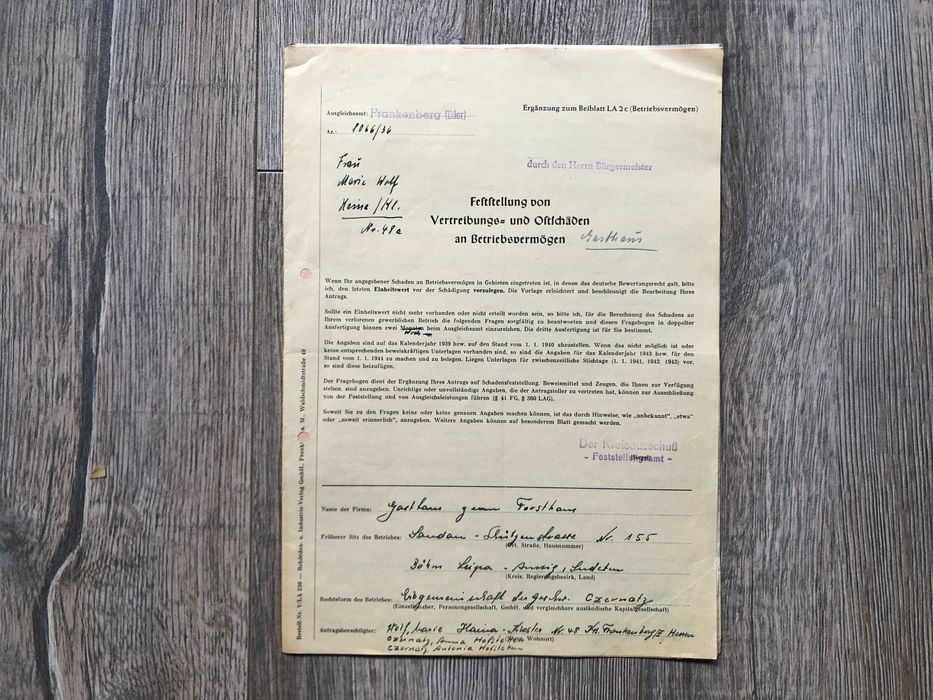 Ausgleichsamt: Frankenberg (Eder)
Ergänzung zum Beiblatt LA 2 c (Betriebsvermögen)
Az.: 2066/36
durch den Herrn Bürgermeister
Frau
Marie Wolf
Haina /Kl.
Nr. 48a
Feststellung von
Vertreibungs= und Ostschäden
an Betriebsvermögen Gasthaus
Wenn Ihr angegebener Schaden an Betriebsvermögen in Gebieten eingetreten ist, in denen das deutsche Bewertungsrecht galt, bitte
ich, den letzten Einheitswert vor der Schädigung vorzulegen. Die Vorlage erleichtert und beschleunigt die Bearbeitung Ihres
Antrags.
Sollte ein Einheitswert nicht mehr vorhanden oder nicht erteilt worden sein, so bitte ich, für die Berechnung des Schadens an
Ihrem verlorenen gewerblichen Betrieb die folgenden Fragen sorgfältig zu beantworten und diesen Fragebogen in doppelter
Ausfertigung binnen zwei Monaten beim Ausgleichsamt einzureichen. Die dritte Ausfertigung ist für Sie bestimmt.
Die Angaben sind auf das Kalenderjahr 1939 bzw. auf den Stand vom 1. 1. 1940 abzustellen. Wenn das nicht möglich ist oder
keine entsprechenden beweiskräftigen Unterlagen vorhanden sind, so sind die Angaben für das Kalenderjahr 1943 bzw. für den
Stand vom 1. 1. 1944 zu machen und zu belegen. Liegen Unterlagen für zwischenzeitliche Stichtage (1. 1. 1941, 1942, 1943) vor,
so sind diese beizufügen.
Der Fragebogen dient der Ergänzung Ihres Antrags auf Schadensfeststellung. Beweismittel und Zeugen, die Ihnen zur Verfügung
stehen, sind anzugeben. Unrichtige oder unvollständige Angaben, die der Antragsteller zu vertreten hat, können zur Ausschließung
von der Feststellung und von Ausgleichsleistungen führen (§ 41 FG, § 360 LAG).
Soweit Sie zu den Fragen keine oder keine genauen Angaben machen können, ist das durch Hinweise, wie „unbekannt", „etwa"
oder „soweit erinnerlich", anzugeben. Weitere Angaben können auf besonderem Blatt gemacht werden.
Der Kreisausschuß
- Feststellungsamt -
Name der Firma: Gasthaus zum Forsthaus
Früherer Sitz des Betriebes: Sandau - Schützenstrasse Nr. 155
(Ort, Straße, Hausnummer)
Böhm Leipa - Aussig, Sudeten
(Kreis, Regierungsbezirk, Land)
Rechtsform des Betriebes: Erbgemeinschaft der Geschw. Czernatz
(Einzelinhaber, Personengesellschaft, GmbH. od. vergleichbare ausländische Kapitalgesellschaft)
Antragsberechtigter: Wolf, Marie Haina - Kloster Nr 48 Kr. Frankenberg/E Hessen
Wohnort)
Czernatz, Anna Hofstetten
Czernatz, Antonia Hofstetten
Bestell-Nr. V/LA 220 — Behörden- u. Industrie-Verlag GmbH., Frankf a. M., Waldschmidtstraße 49